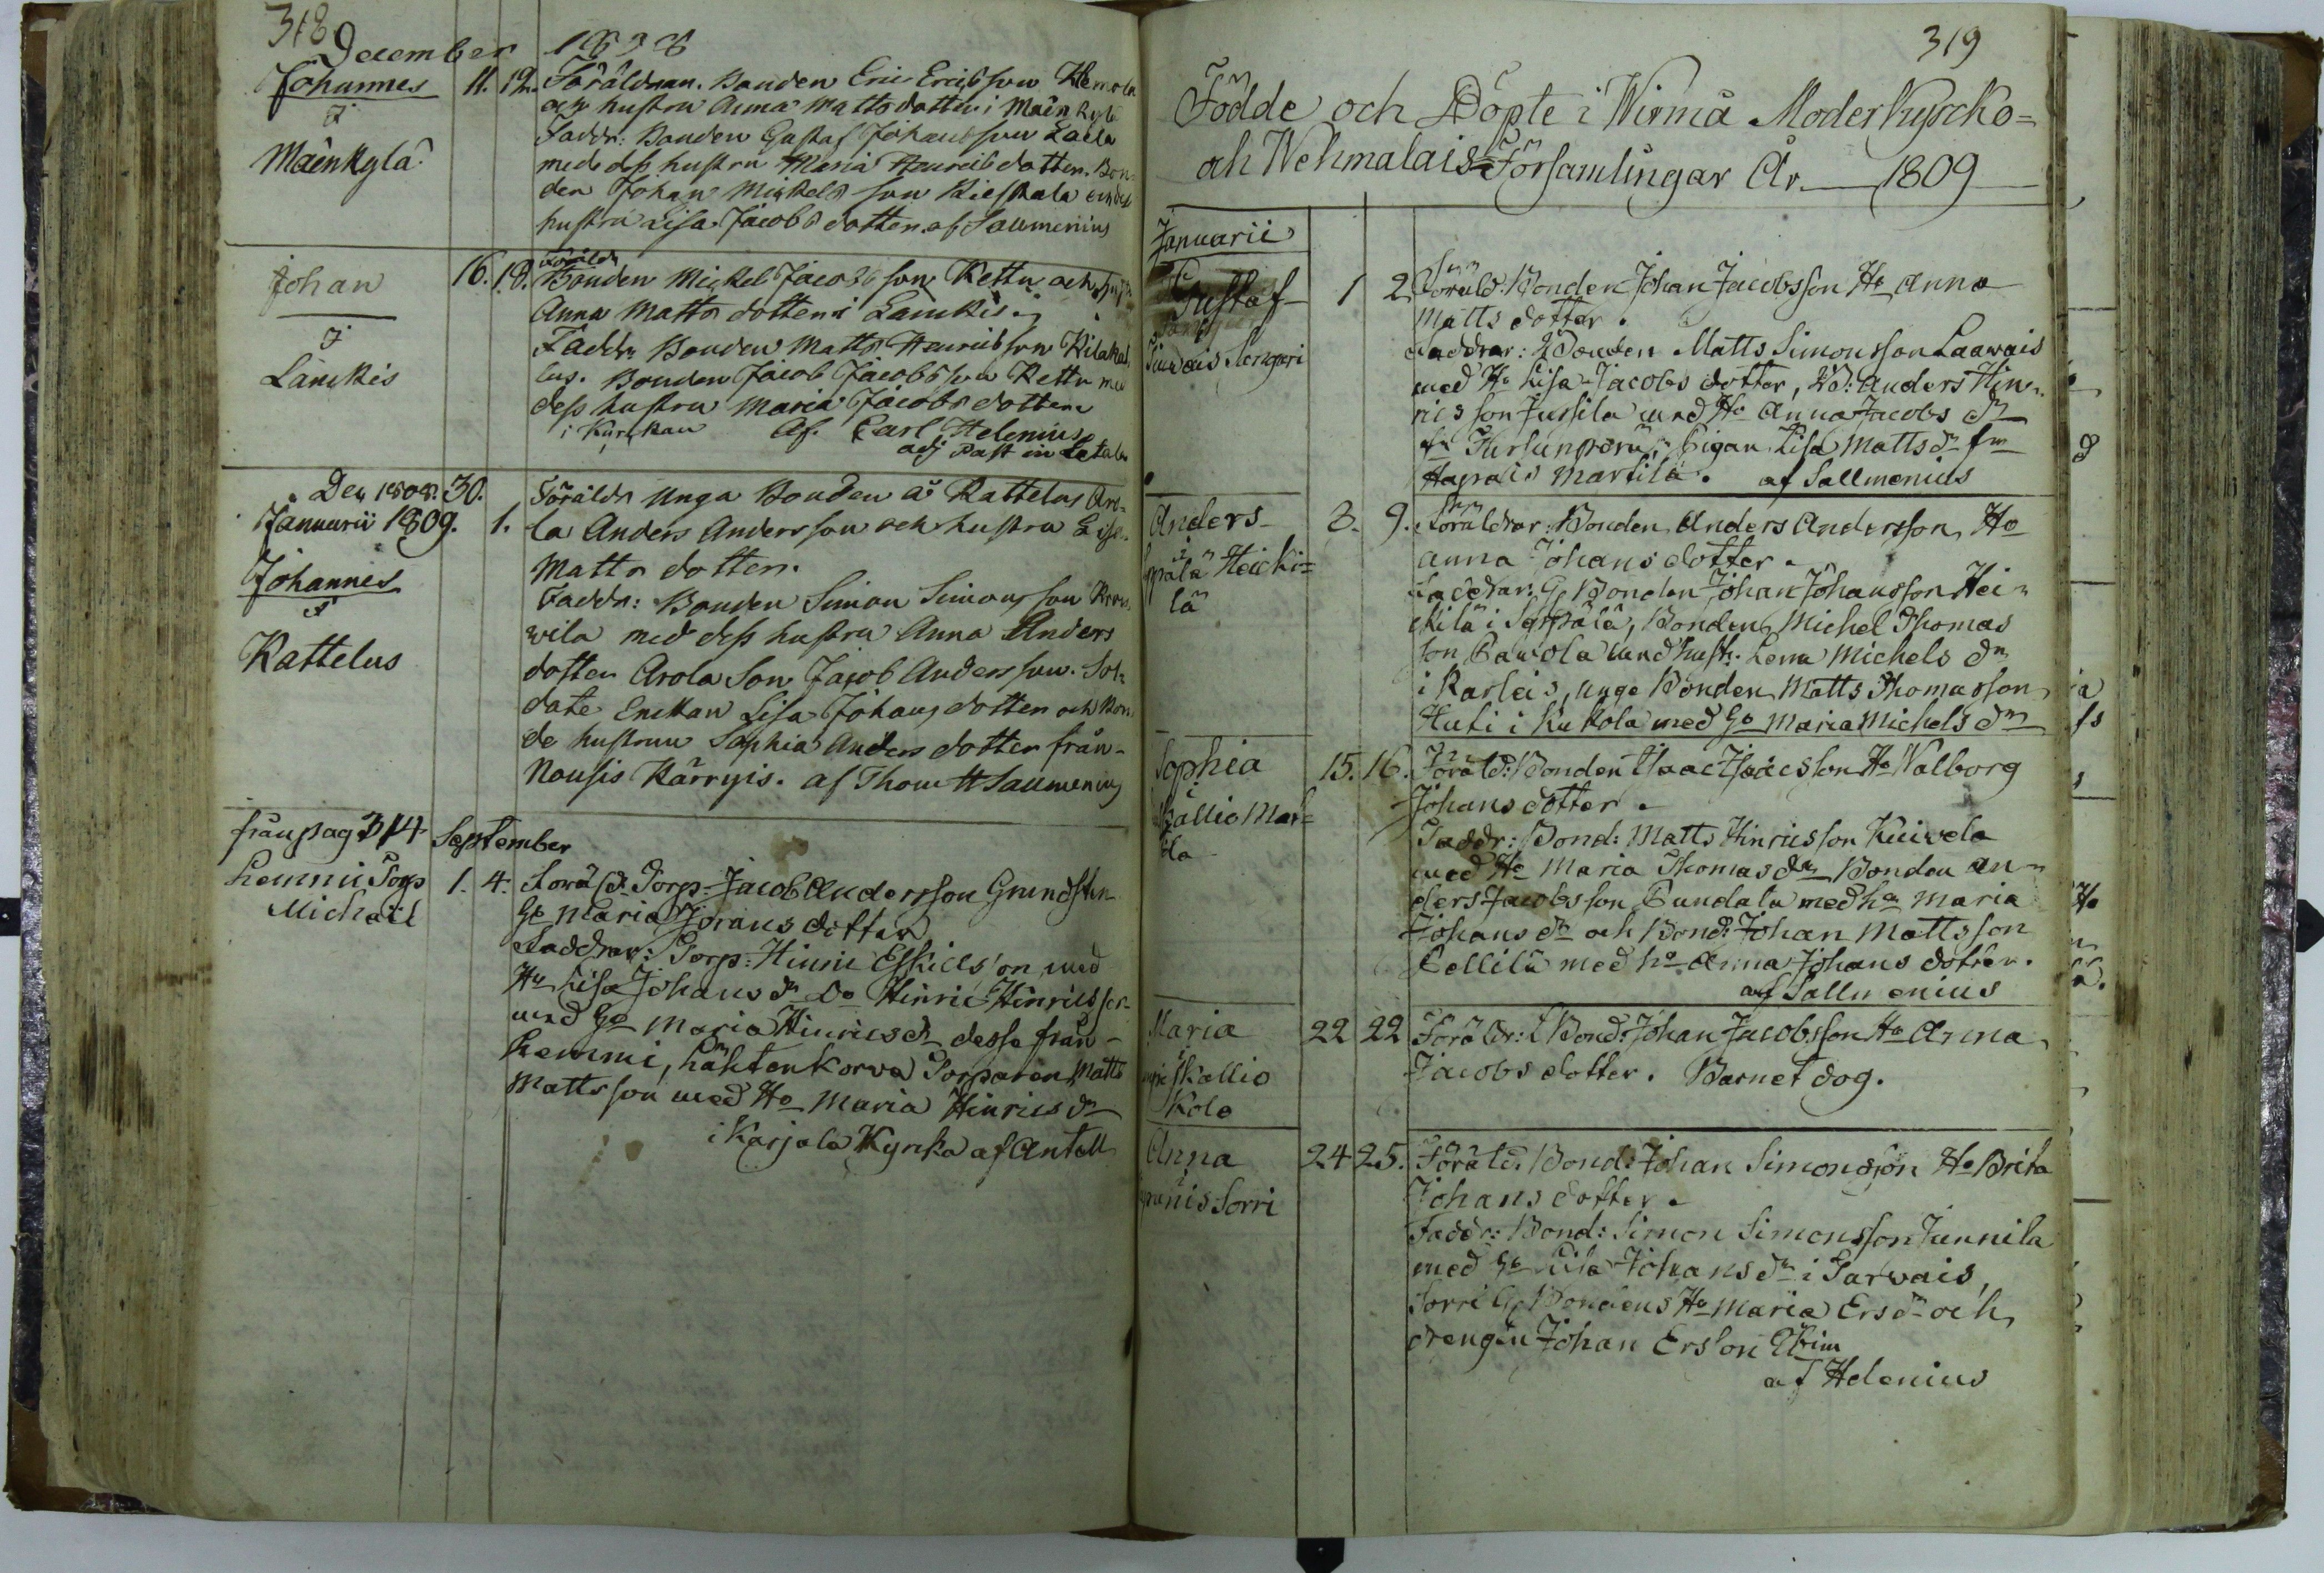 318
December 1808
Johannes 11. 12. Föräldrar. Bonden Eric Ericsson Hemola
i och hustru Anna Matts dotter i Mäenkylä
Mäenkylä Faddr: Bonden Gustaf Johansson Laela
med dess hustru Maria Henrics dotter. Bon-
den Johan Mickels son Kieskala
hustru Lisa Jacobs dotter. af Sallmenius
Johan 16. 18. Föräldr
Bonden Mickel Jacobs son Kettu och
i Anna Matts dotter i Lanckis.
Lanckis Faddr. Bonden Matts Henrics son
Bonden Jacob Jacobs son Kettu med
dess hustru Maria Jacobs dotter
i Kyrckan af. Carl Helenius
adj Past in Letala
Dec 1808. 30. Föräldr Unga Bonden å Kattelus Aro-
Januarii 1809. 1. la Anders Andersson och hustru Lisa
Johannes Matts dotter.
i Faddr: Bonden Simon Simons son
Kattelus wila med dess hustru Anna Anders
dotter Arola Son Jacob Andersson. Sol-
date Enckan Lisa Johans dotter och Bon-
de hustrun Sophia Anders dotter från
Nousis Kärryis. af Thom H Saumenius
från pag 314 September
Lemmi Torp 1. 4. Föräld. Torp. Jacob Andersson Grundsten
Michaël Hu Maria Görans dotter
Faddrar: Torp: Hinric Eskills'on med
Hu Lisa Johans dr Do Hinric Hinricsson
med Hu Maria Hinrics dr desse från
Lemmi, Lähtenkorva Torparen Matts
Mattsson med Hu Maria Hinrics dr
i Karjala Kyrka af Antell
319
Födde och Döpte i Wirmå Moderkyrcko-
och Wehmalais Församlingar År 1809
Januarii
Gustaf 1 2 Föräld. Bonden Johan Jacobsson Hu Anna
Matts dotter.
Sungari Faddrar: Bonden Matts Simonsson Laawais
med Hu Lisa Jacobs dotter, Bd: Anders Hin-
rics son Jussila med Hu Anna Jacobs dr
Pigan Lisa Matts dr
Hapais Martila. af Sallmenius
Anders 3. 9. Föräldrar. Bonden Anders Andersson, Hu
i Anna Johans dotter.
Heicki- Faddrar. Bonden Johan Johansson Hei-
lä ckilä i Seppälä, Bonden Michel Thomas
son Pawola med hustr. Lena Michels dr
i Karleis, unge Bonden Matts Thomasson
Huti i Kukola med Hu Maria Michels dr
Sophia 15. 16. Föräld: Bonden Isaac Isaacsson Hu Walborg
i Johans dotter.
Kallio Mar- Faddr: Bond: Matts Hinricsson Kuiwela
tila med Hu Maria Thomas dr Bonden An-
ders Jacobsson Pundala med hu Maria
Johans dr och Bond: Johan Mattsson
Pellilä med hu Anna Johans dotter.
af Sallmenius
Maria 22 22 Föräldr: Bond: Johan Jacobsson Hu Anna
i Jacobs dotter. Barnet dog.
Kallio
Kole
Anna 24 25. Föräld. Bond: Johan Simonsson Hu Brita
i Johans dotter.
Sorri Faddr: Bond: Simon Simonsson Junnila
med Hu Johans dr i Tarwais,
Sorri Bondens Hu Maria Ers dr och
drengen Johan Ersson
af Helenius